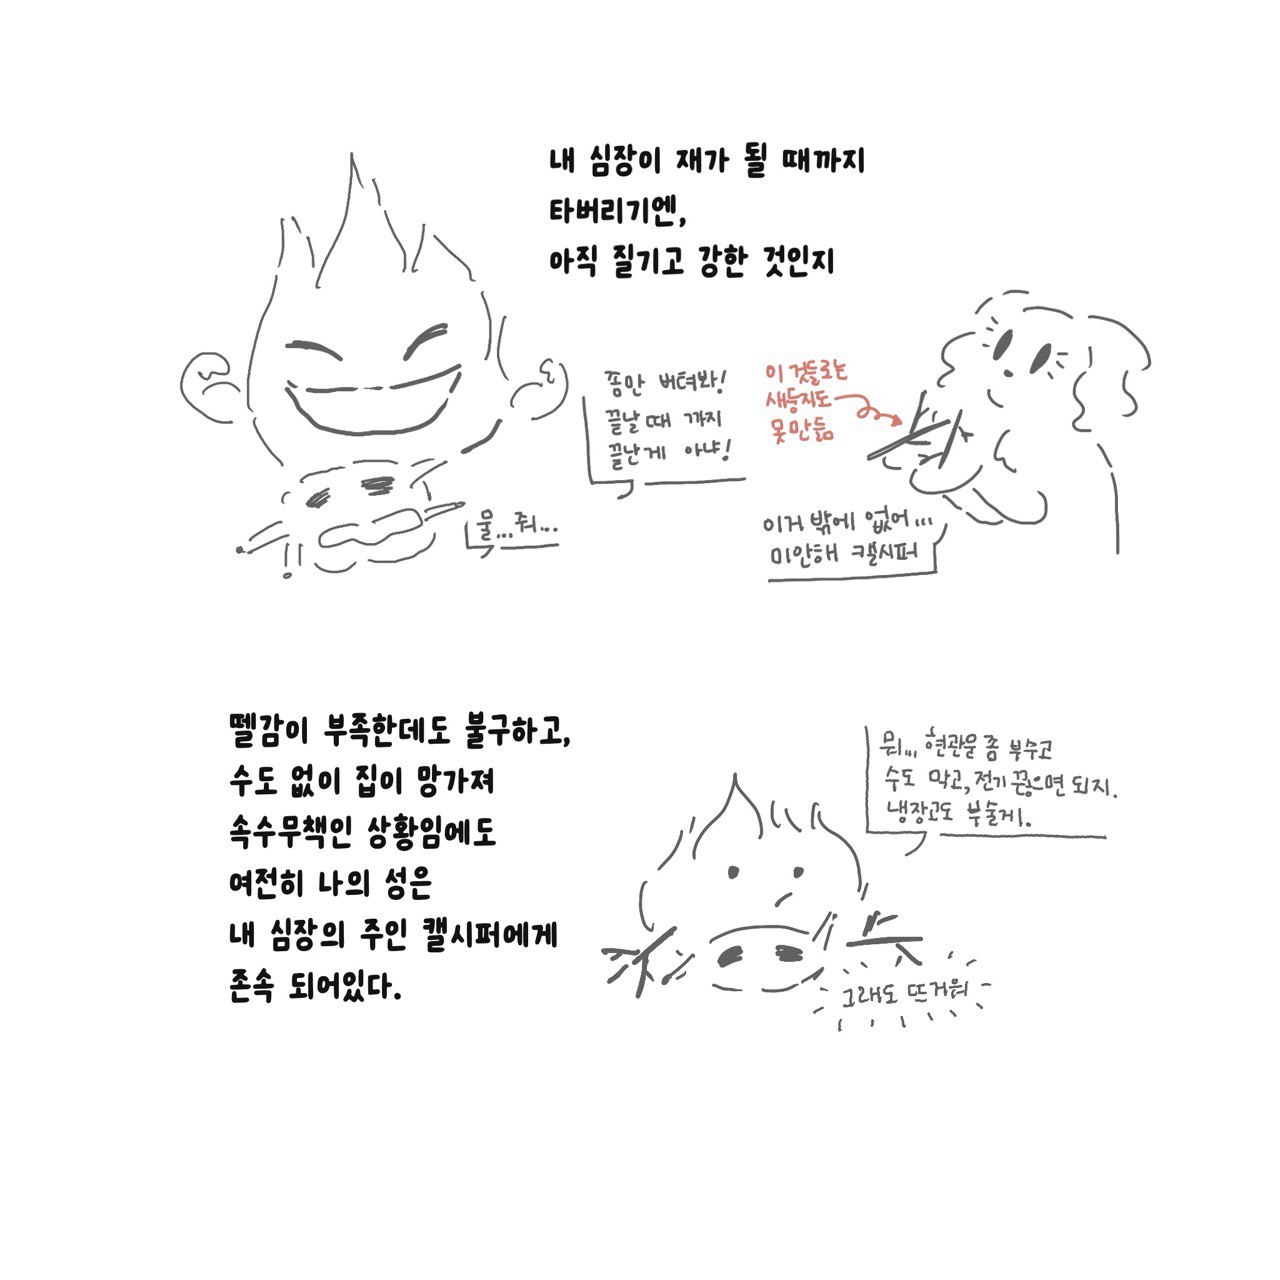 내 심장이 재가 될 때까지
타버리기엔,
아직 질기고 강한 것인지
좀만 버텨봐!
끝날 때 까지
끝난게 아냐!
이 것들로는
새둥지도
못 만듦
물...줘...
이거 밖에 없어...
미안해 캘시퍼
뗄감이 부족한데도 불구하고,
수도 없이 집이 망가져
속수무책인 상황임에도
여전히 나의 성은
내 심장의 주인 캘시퍼에게
존속 되어있다.
뭐... 현관문 좀 부수고
수도 막고, 전기 끊으면 되지.
냉장고도 부술게.
그래도 뜨거워